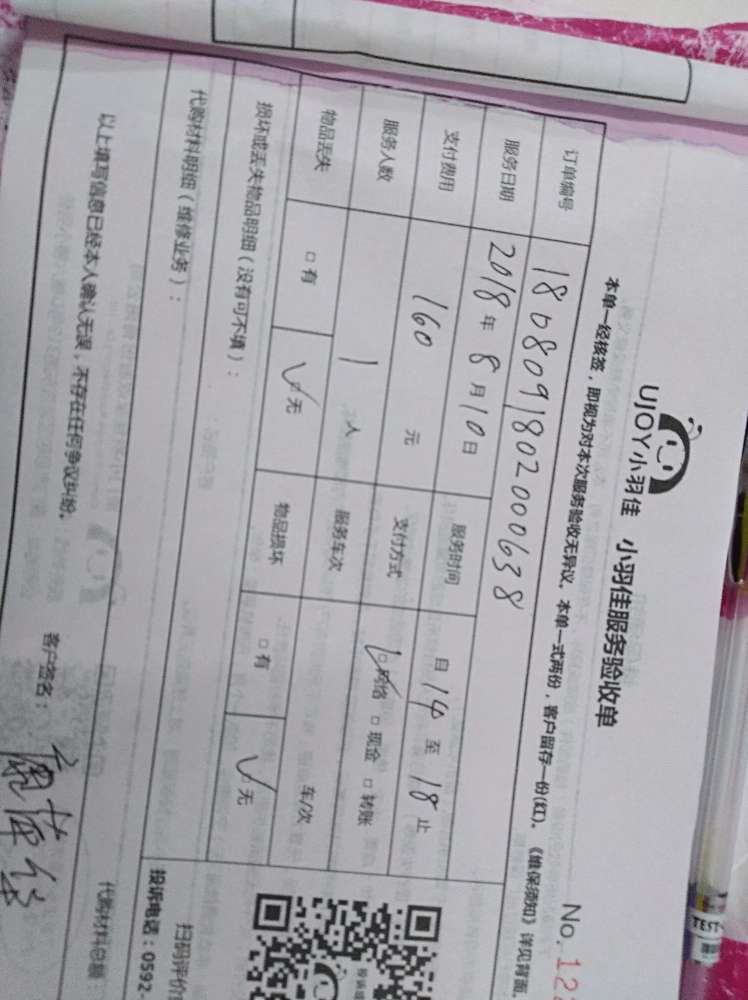 UJOY小羽佳 小羽佳服务验收单
No.12
本单一经核签，即视为对本次服务验收无异议。本单一式两份，客户留存一份(红)。《维保须知》详见背面
订单编号 1808091802000638
服务日期 2018年8月10日 服务时间 自14至18止
支付费用 160元 支付方式 □网络 □现金 □转账
服务人数 1人 服务车次 车/次
物品丢失 □有 □无 物品损坏 □有 □无
损坏或丢失物品明细（没有可不填）：
代购材料明细（维修业务）：
代购材料总额
以上填写信息已经本人确认无误，不存在任何争议纠纷。 客户签名：
扫码评价
投诉电话：0592-